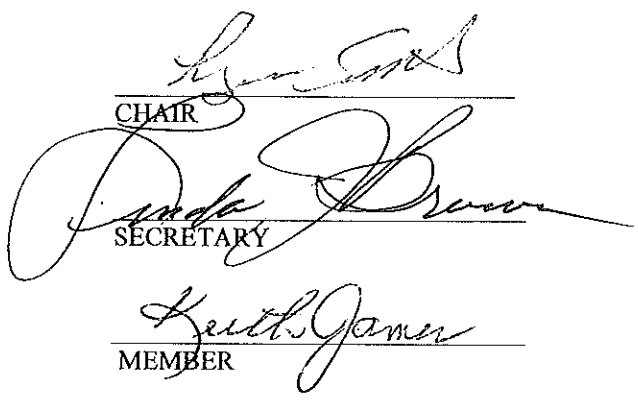 CHAIR
Linda J Brown
SECRETARY
Keith James
MEMBER